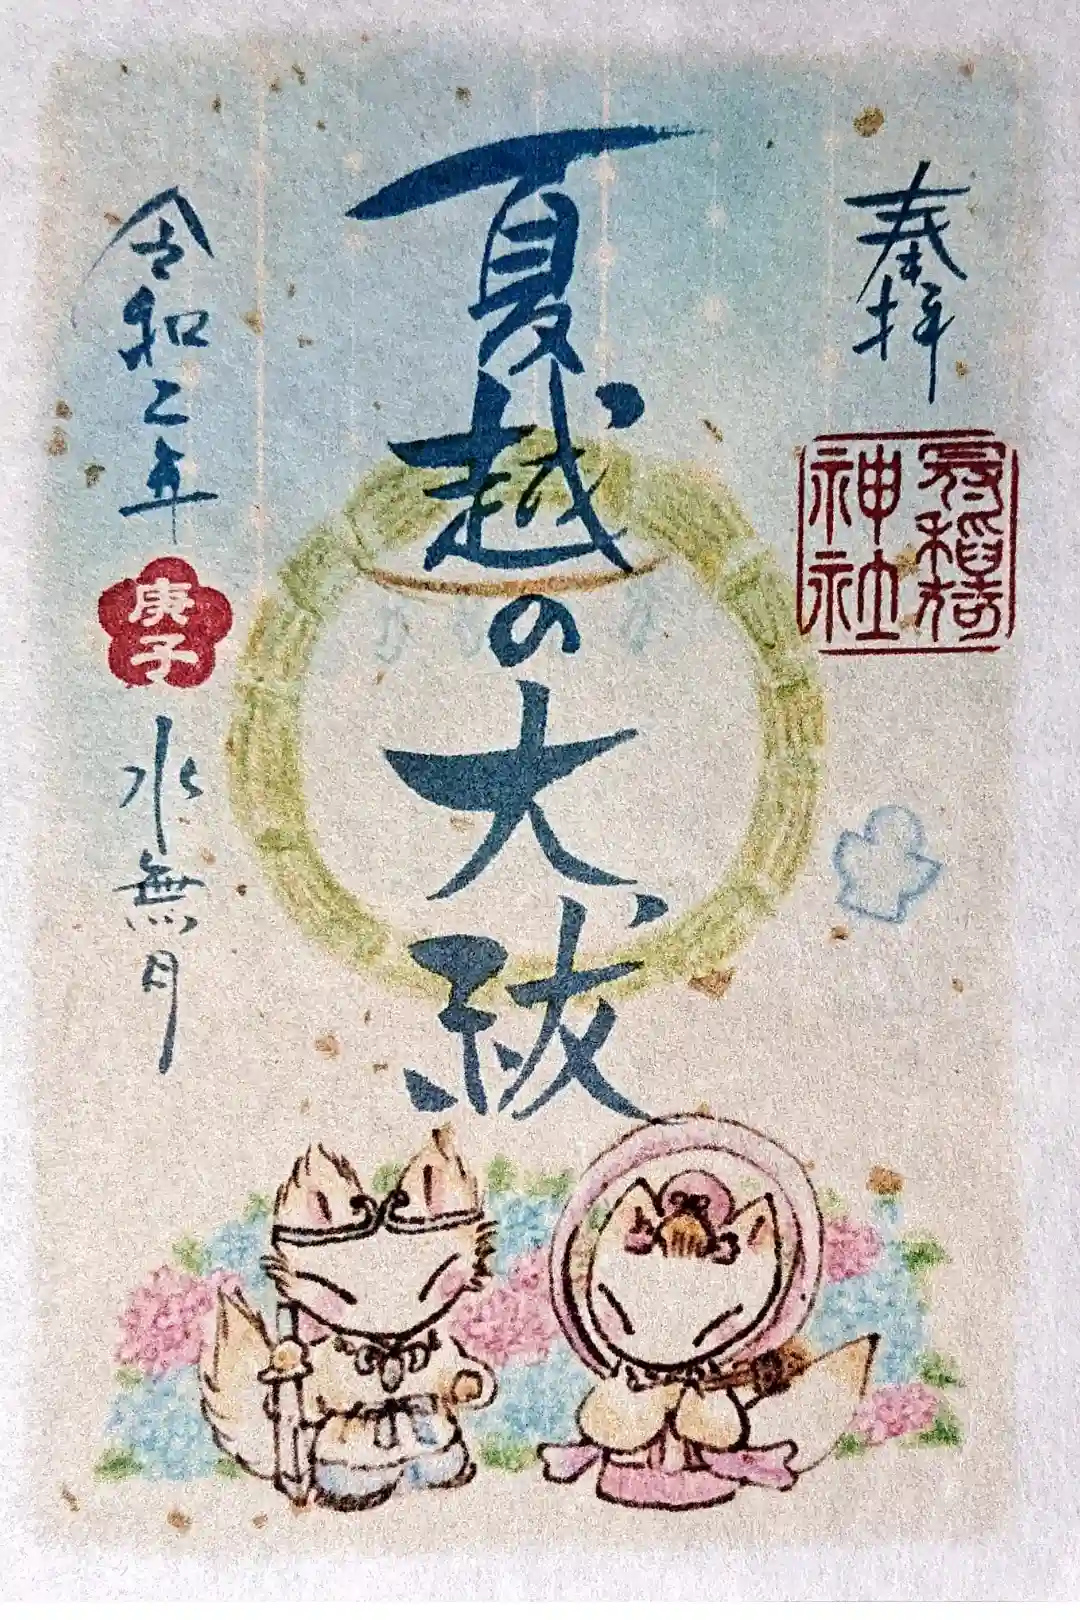 奉拝
冠稲荷
神社
夏越の大祓
令和二年
庚子
水無月